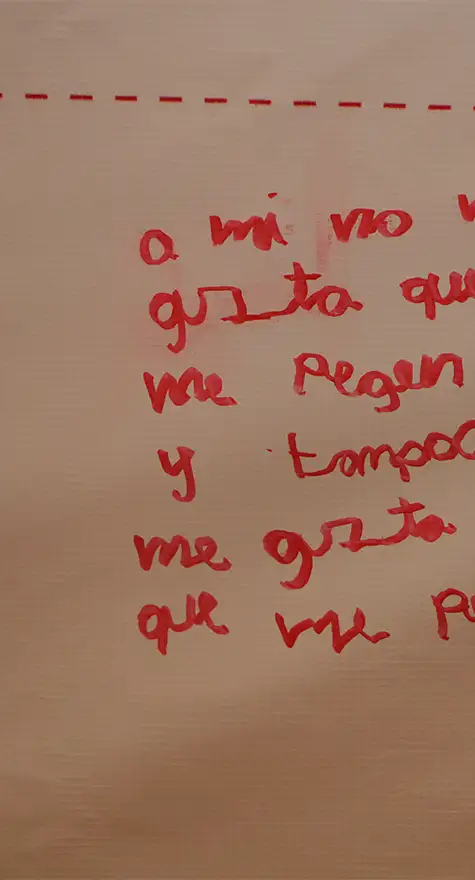 a mi no
gusta que
me pegen
y tampoc
me gusta
que me